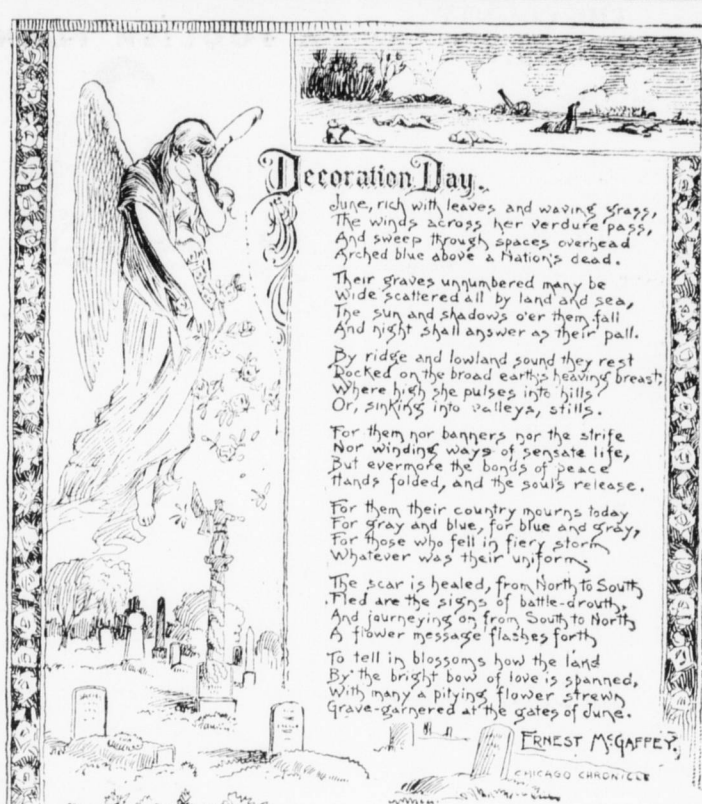 Decoration Day.
June, rich with leaves and waving grass,
The winds across her verdure pass,
And sweep through spaces overhead
Arched blue above a Nation's dead.
Their graves unnumbered many be
Wide scattered all by land and sea,
The sun and shadows o'er them fall
And night shall answer as their pall.
By ridge and lowland sound they rest
Rocked on the broad earth's heaving breast,
Where high she pulses into hills
Or, sinking into valleys, stills.
For them nor banners nor the strife
Nor winding ways of sensate life,
But evermore the bonds of peace
Hands folded, and the soul's release.
For them their country mourns today
For gray and blue, for blue and gray,
For those who fell in fiery storm
Whatever was their uniform
The scar is healed, from North to South
Fled are the signs of battle-drouth,
And journeying on from South to North
A flower message flashes forth
To tell in blossoms how the land
By the bright bow of love is spanned,
With many a pitying flower strewn
Grave-garnered at the gates of June.
ERNEST McGAFFEY.
CHICAGO CHRONICLE